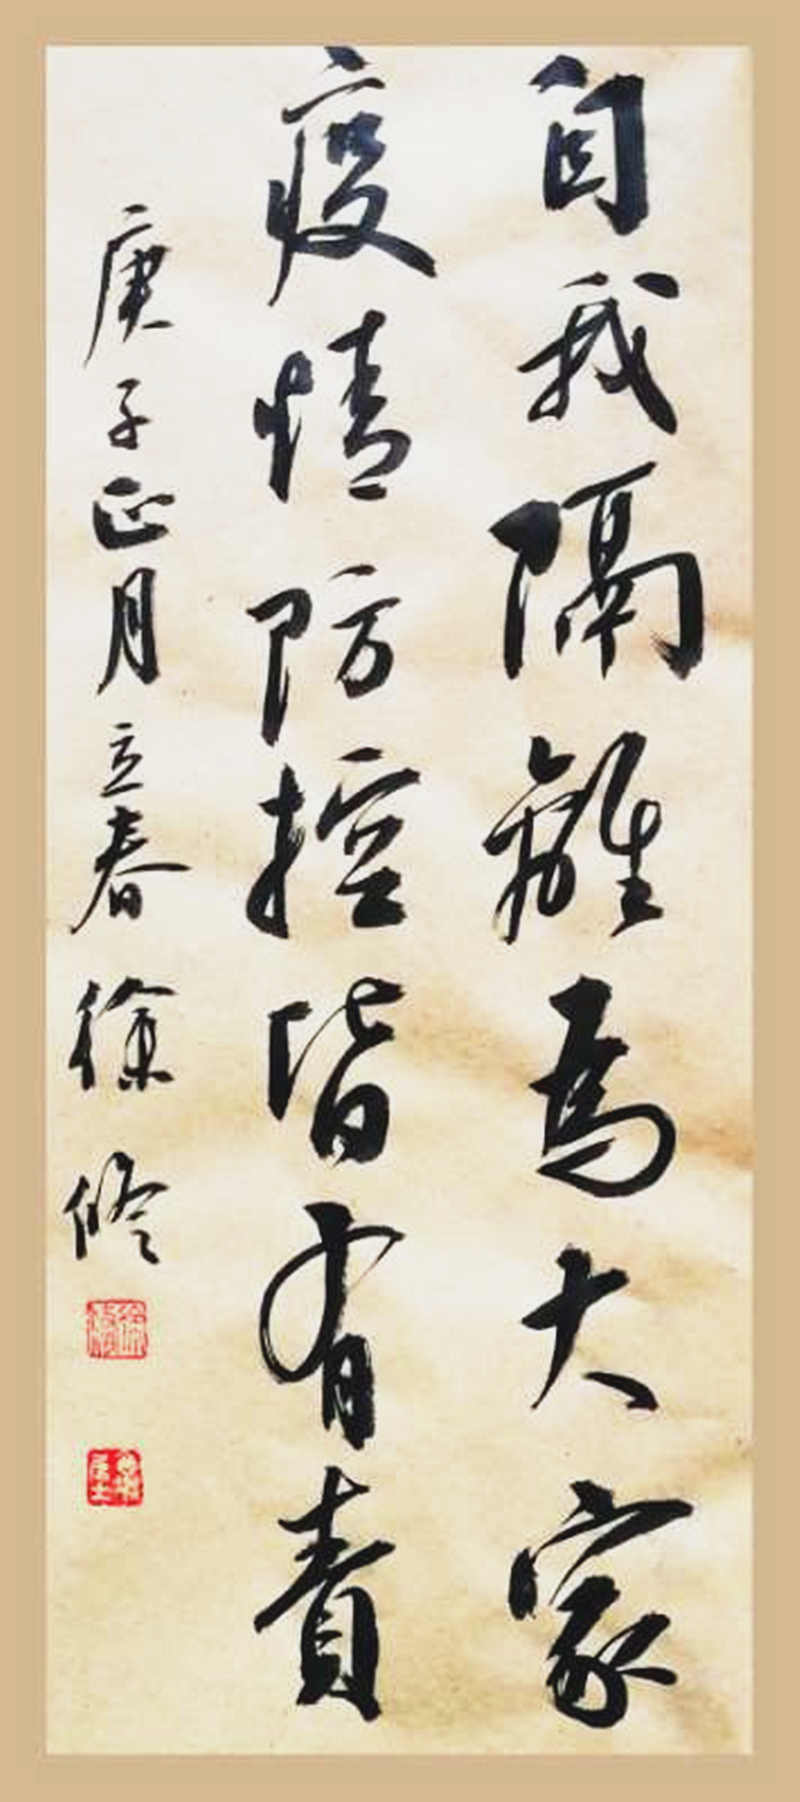 自我隔離為大家
疫情防控皆有責
庚子正月立春徐修